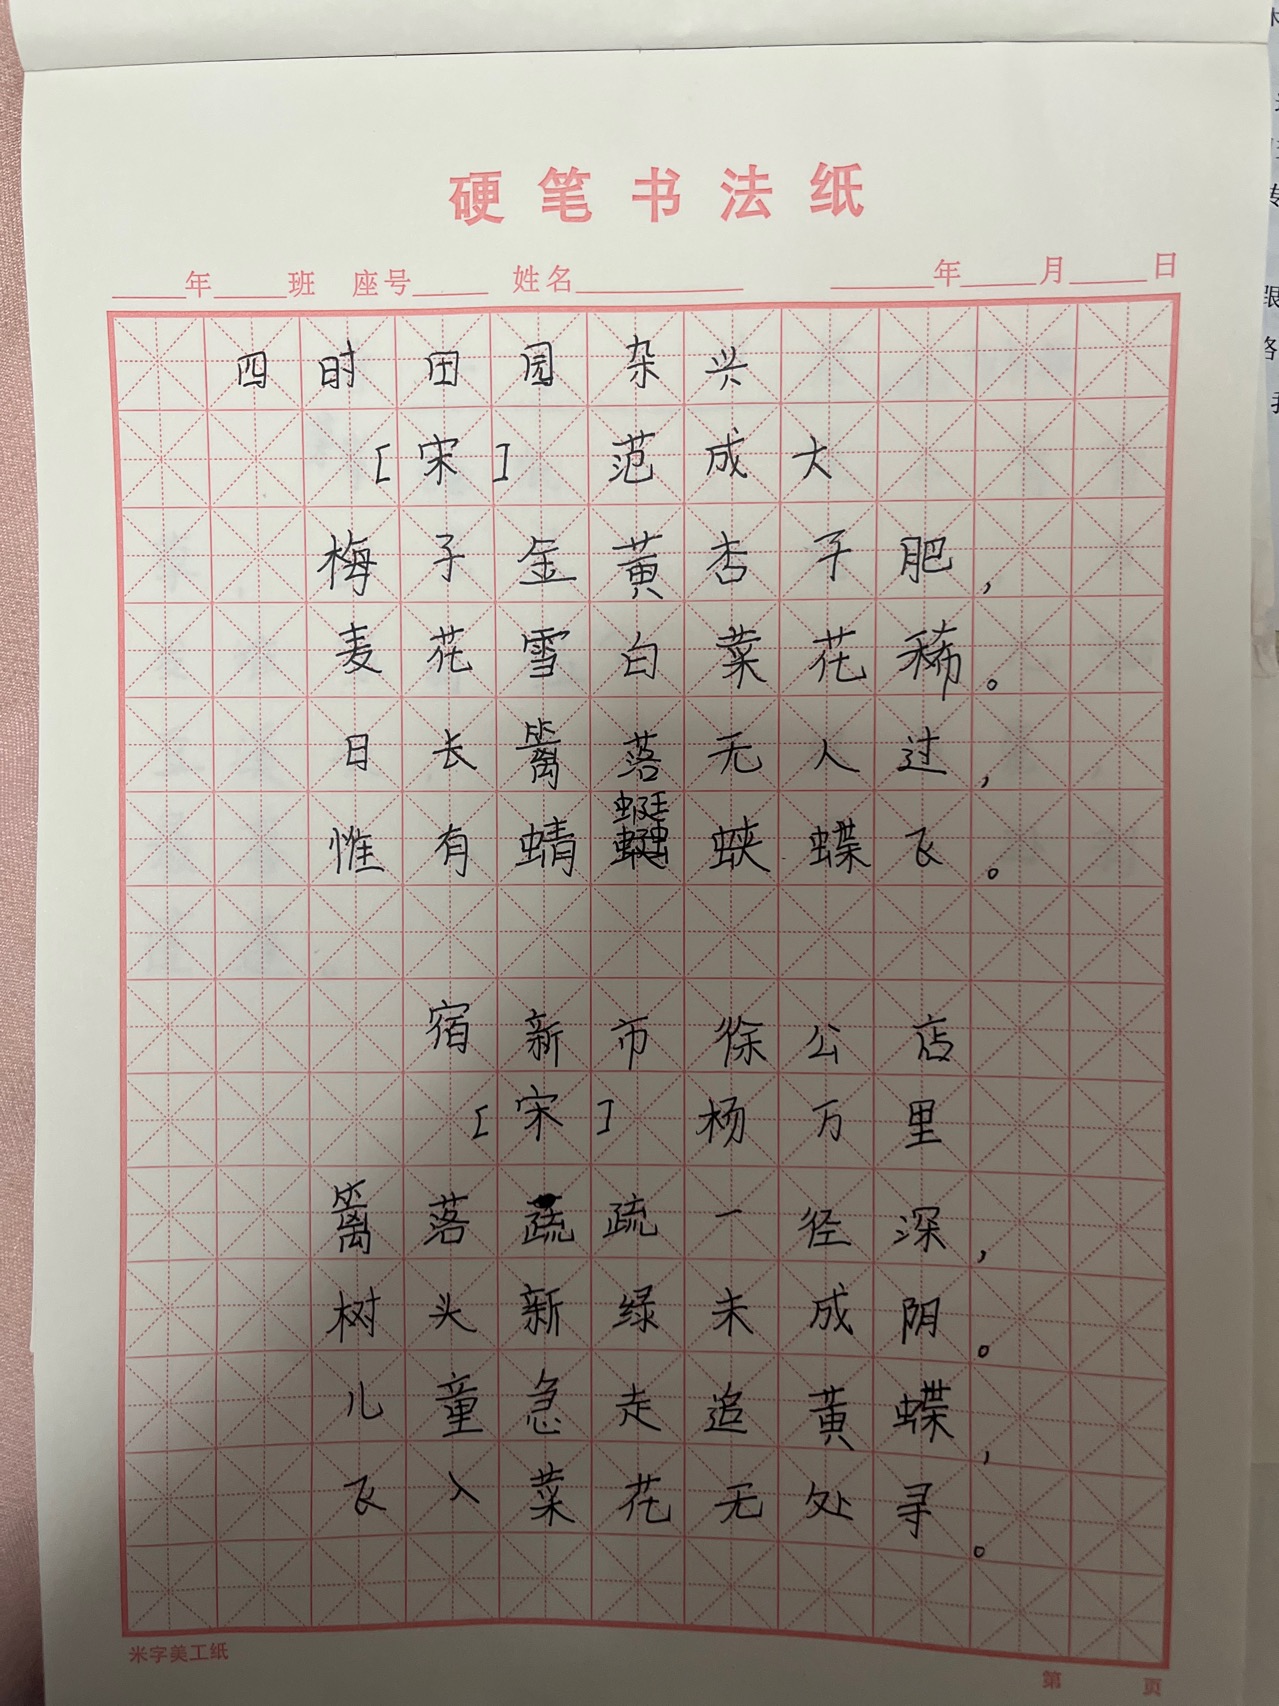 硬笔书法纸
年 班 座号 姓名 年 月 日
四时田园杂兴
[宋] 范成大
梅子金黄杏子肥，
麦花雪白菜花稀。
日长篱落无人过，
惟有蜻蜓蛱蝶飞。
宿新市徐公店
[宋] 杨万里
篱落疏疏一径深，
树头新绿未成阴。
儿童急走追黄蝶，
飞入菜花无处寻。
米字美工纸
第 页